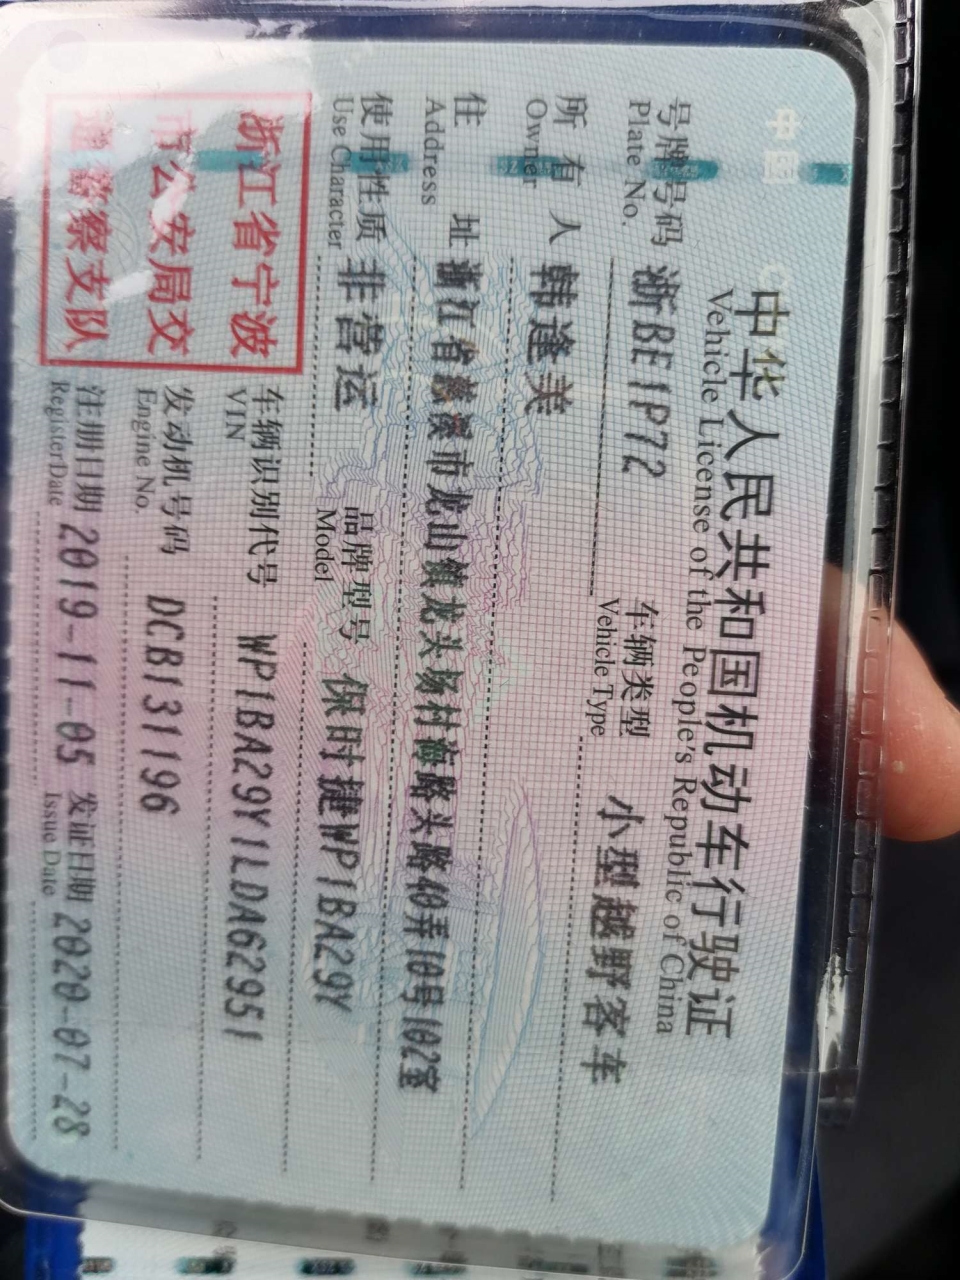 中国
中华人民共和国机动车行驶证
Vehicle License of the People's Republic of China
号牌号码 浙BE1P72 车辆类型 小型越野客车
Plate No. Vehicle Type
所有人 韩逢美
Owner
住址 浙江省慈溪市龙山镇龙头场村海路头路40弄10号102室
Address
使用性质 非营运 品牌型号 保时捷WP1BA29Y
Use Character Model
浙江省宁波
市公安局交
通警察支队
车辆识别代号 WP1BA29Y1LDA62951
VIN
发动机号码 DCB131196
Engine No.
注册日期 2019-11-05 发证日期 2020-07-28
RegisterDate Issue Date